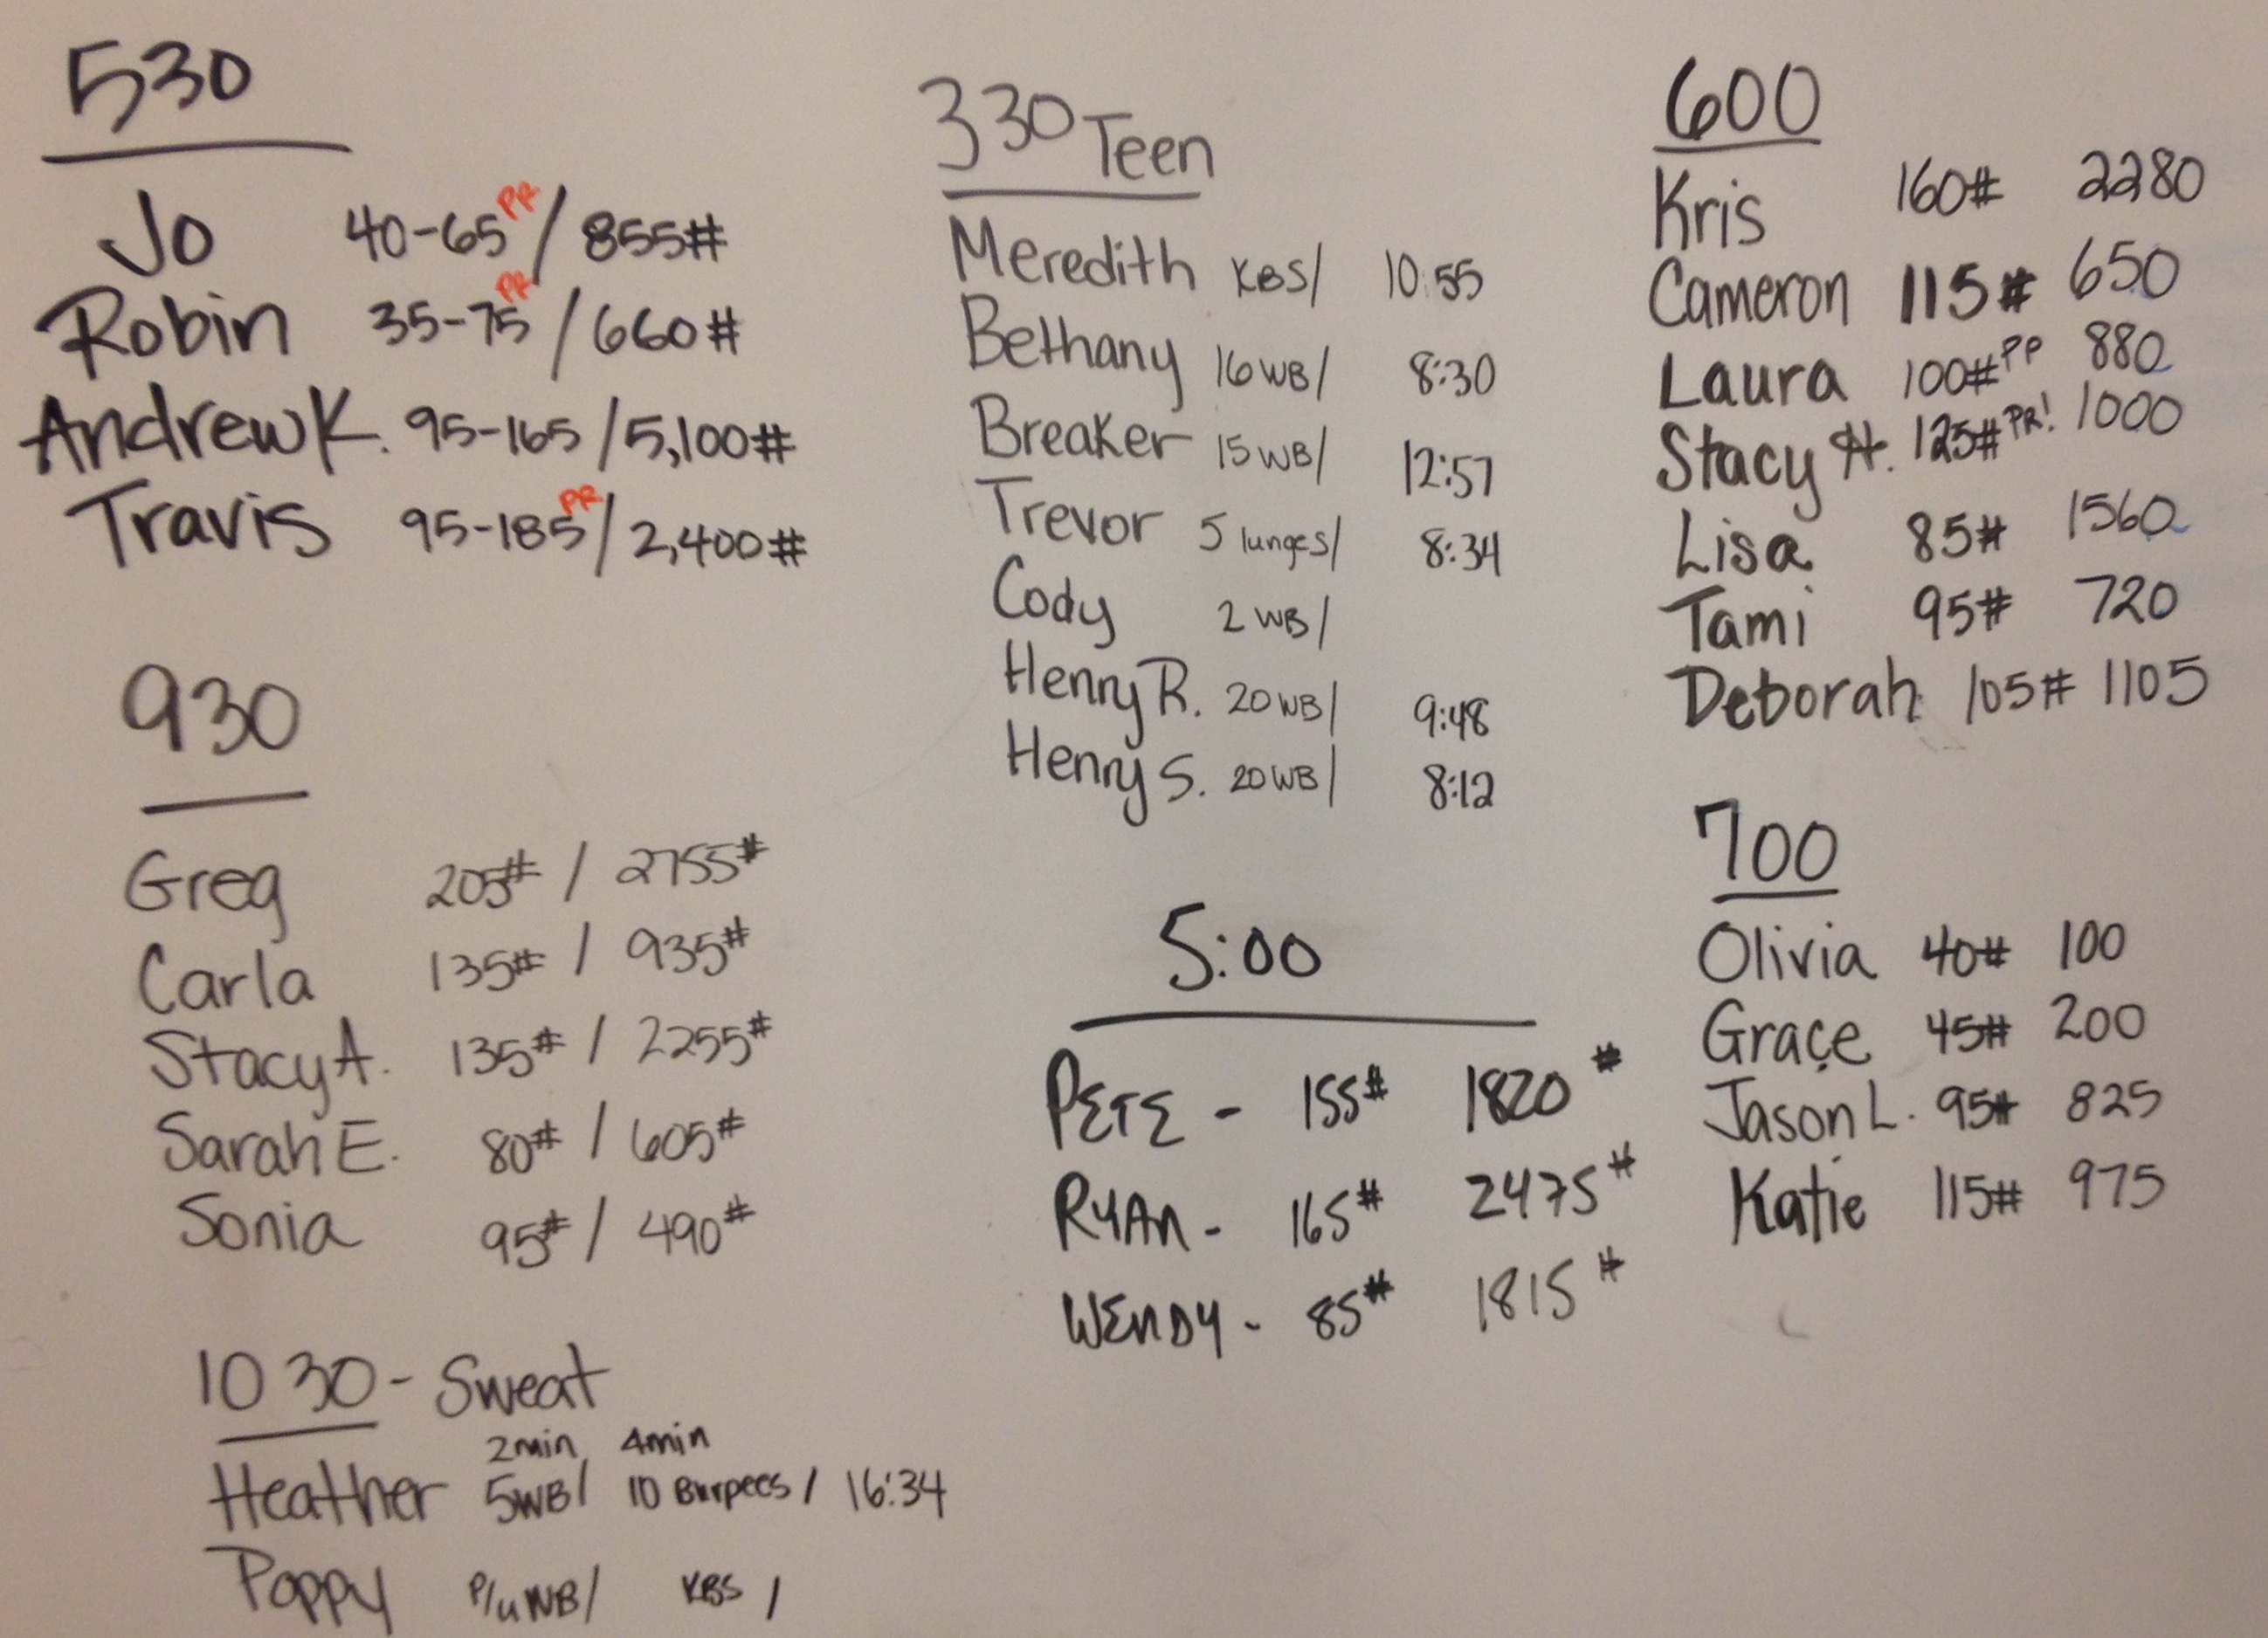 530
Jo 40-65 PR / 855#
Robin 35-75 PR / 660#
Andrew K. 95-165 / 5,100#
Travis 95-185 PR / 2,400#
930
Greg 205# / 2755#
Carla 135# / 935#
Stacy A. 135# / 2255#
Sarah E. 80# / 605#
Sonia 95# / 490#
10 30 - Sweat
2min 4min
Heather 5WB/ 10 Burpees / 16:34
Poppy P/u WB/ KBS /
330 Teen
Meredith KBS/ 10:55
Bethany 16 WB/ 8:30
Breaker 15 WB/ 12:57
Trevor 5 lunges/ 8:34
Cody 2 WB/
Henry R. 20 WB/ 9:48
Henry S. 20 WB/ 8:12
5:00
PETE - 155# 1820#
RYAN - 165# 2475#
WENDY - 85# 1815#
600
Kris 160# 2280
Cameron 115# 650
Laura 100# PP 880
Stacy H. 125# PR! 1000
Lisa 85# 1560
Tami 95# 720
Deborah 105# 1105
700
Olivia 40# 100
Grace 45# 200
Jason L. 95# 825
Katie 115# 975